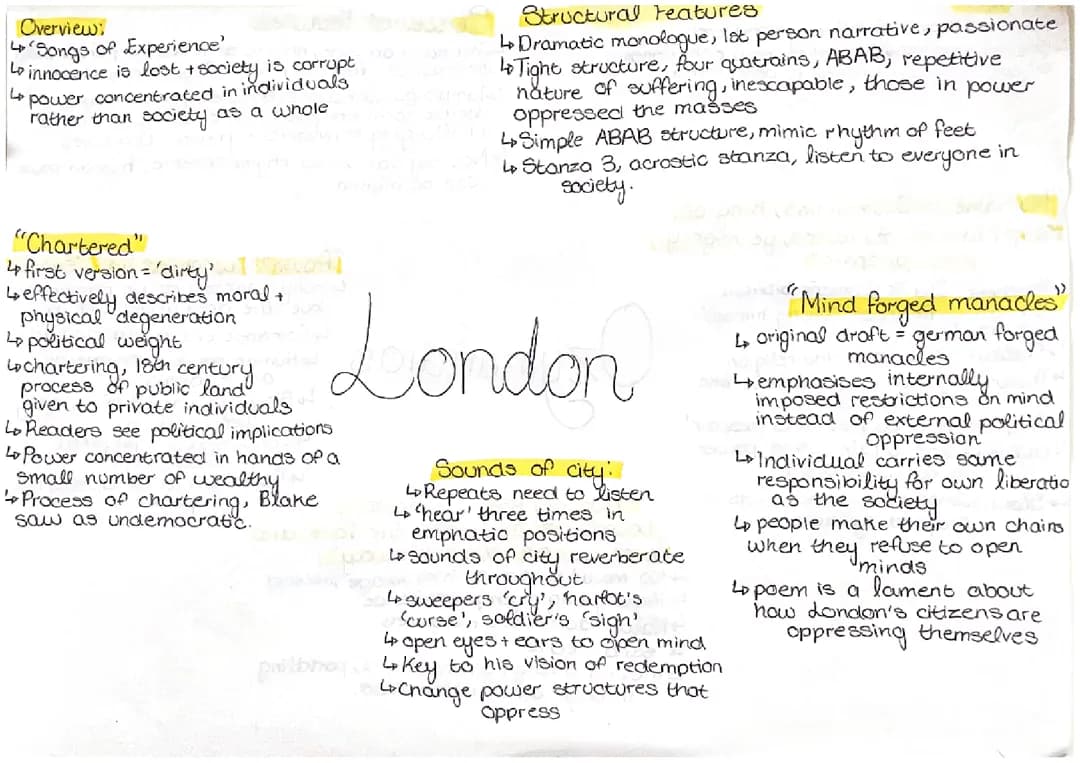 Overview:
↳ 'Songs of Experience'
↳ innocence is lost + society is corrupt
↳ power concentrated in individuals
rather than society as a whole
Structural Features
↳ Dramatic monologue, 1st person narrative, passionate
↳ Tight structure, four quatrains, ABAB, repetitive
nature of suffering, inescapable, those in power
oppressed the masses
↳ Simple ABAB structure, mimic rhythm of feet
↳ Stanza 3, acrostic stanza, listen to everyone in
society.
"Chartered"
↳ first version = 'dirty'
↳ effectively describes moral +
physical degeneration
↳ political weight
↳ chartering, 18th century
process of public land
given to private individuals
↳ Readers see political implications
↳ Power concentrated in hands of a
small number of wealthy
↳ Process of chartering, Blake
saw as undemocratic.
London
Sounds of city:
↳ Repeats need to listen
↳ 'hear' three times in
emphatic positions
↳ sounds of city reverberate
throughout
↳ sweepers 'cry', harlot's
'curse', soldier's 'sigh'
↳ open eyes + ears to open mind
↳ Key to his vision of redemption
↳ Change power structures that
oppress
"Mind forged manacles"
↳ original draft = german forged
manacles
↳ emphasises internally
imposed restrictions on mind
instead of external political
oppression
↳ Individual carries same
responsibility for own liberatio
as the society
↳ people make their own chains
when they refuse to open
minds
↳ poem is a lament about
how London's citizens are
oppressing themselves